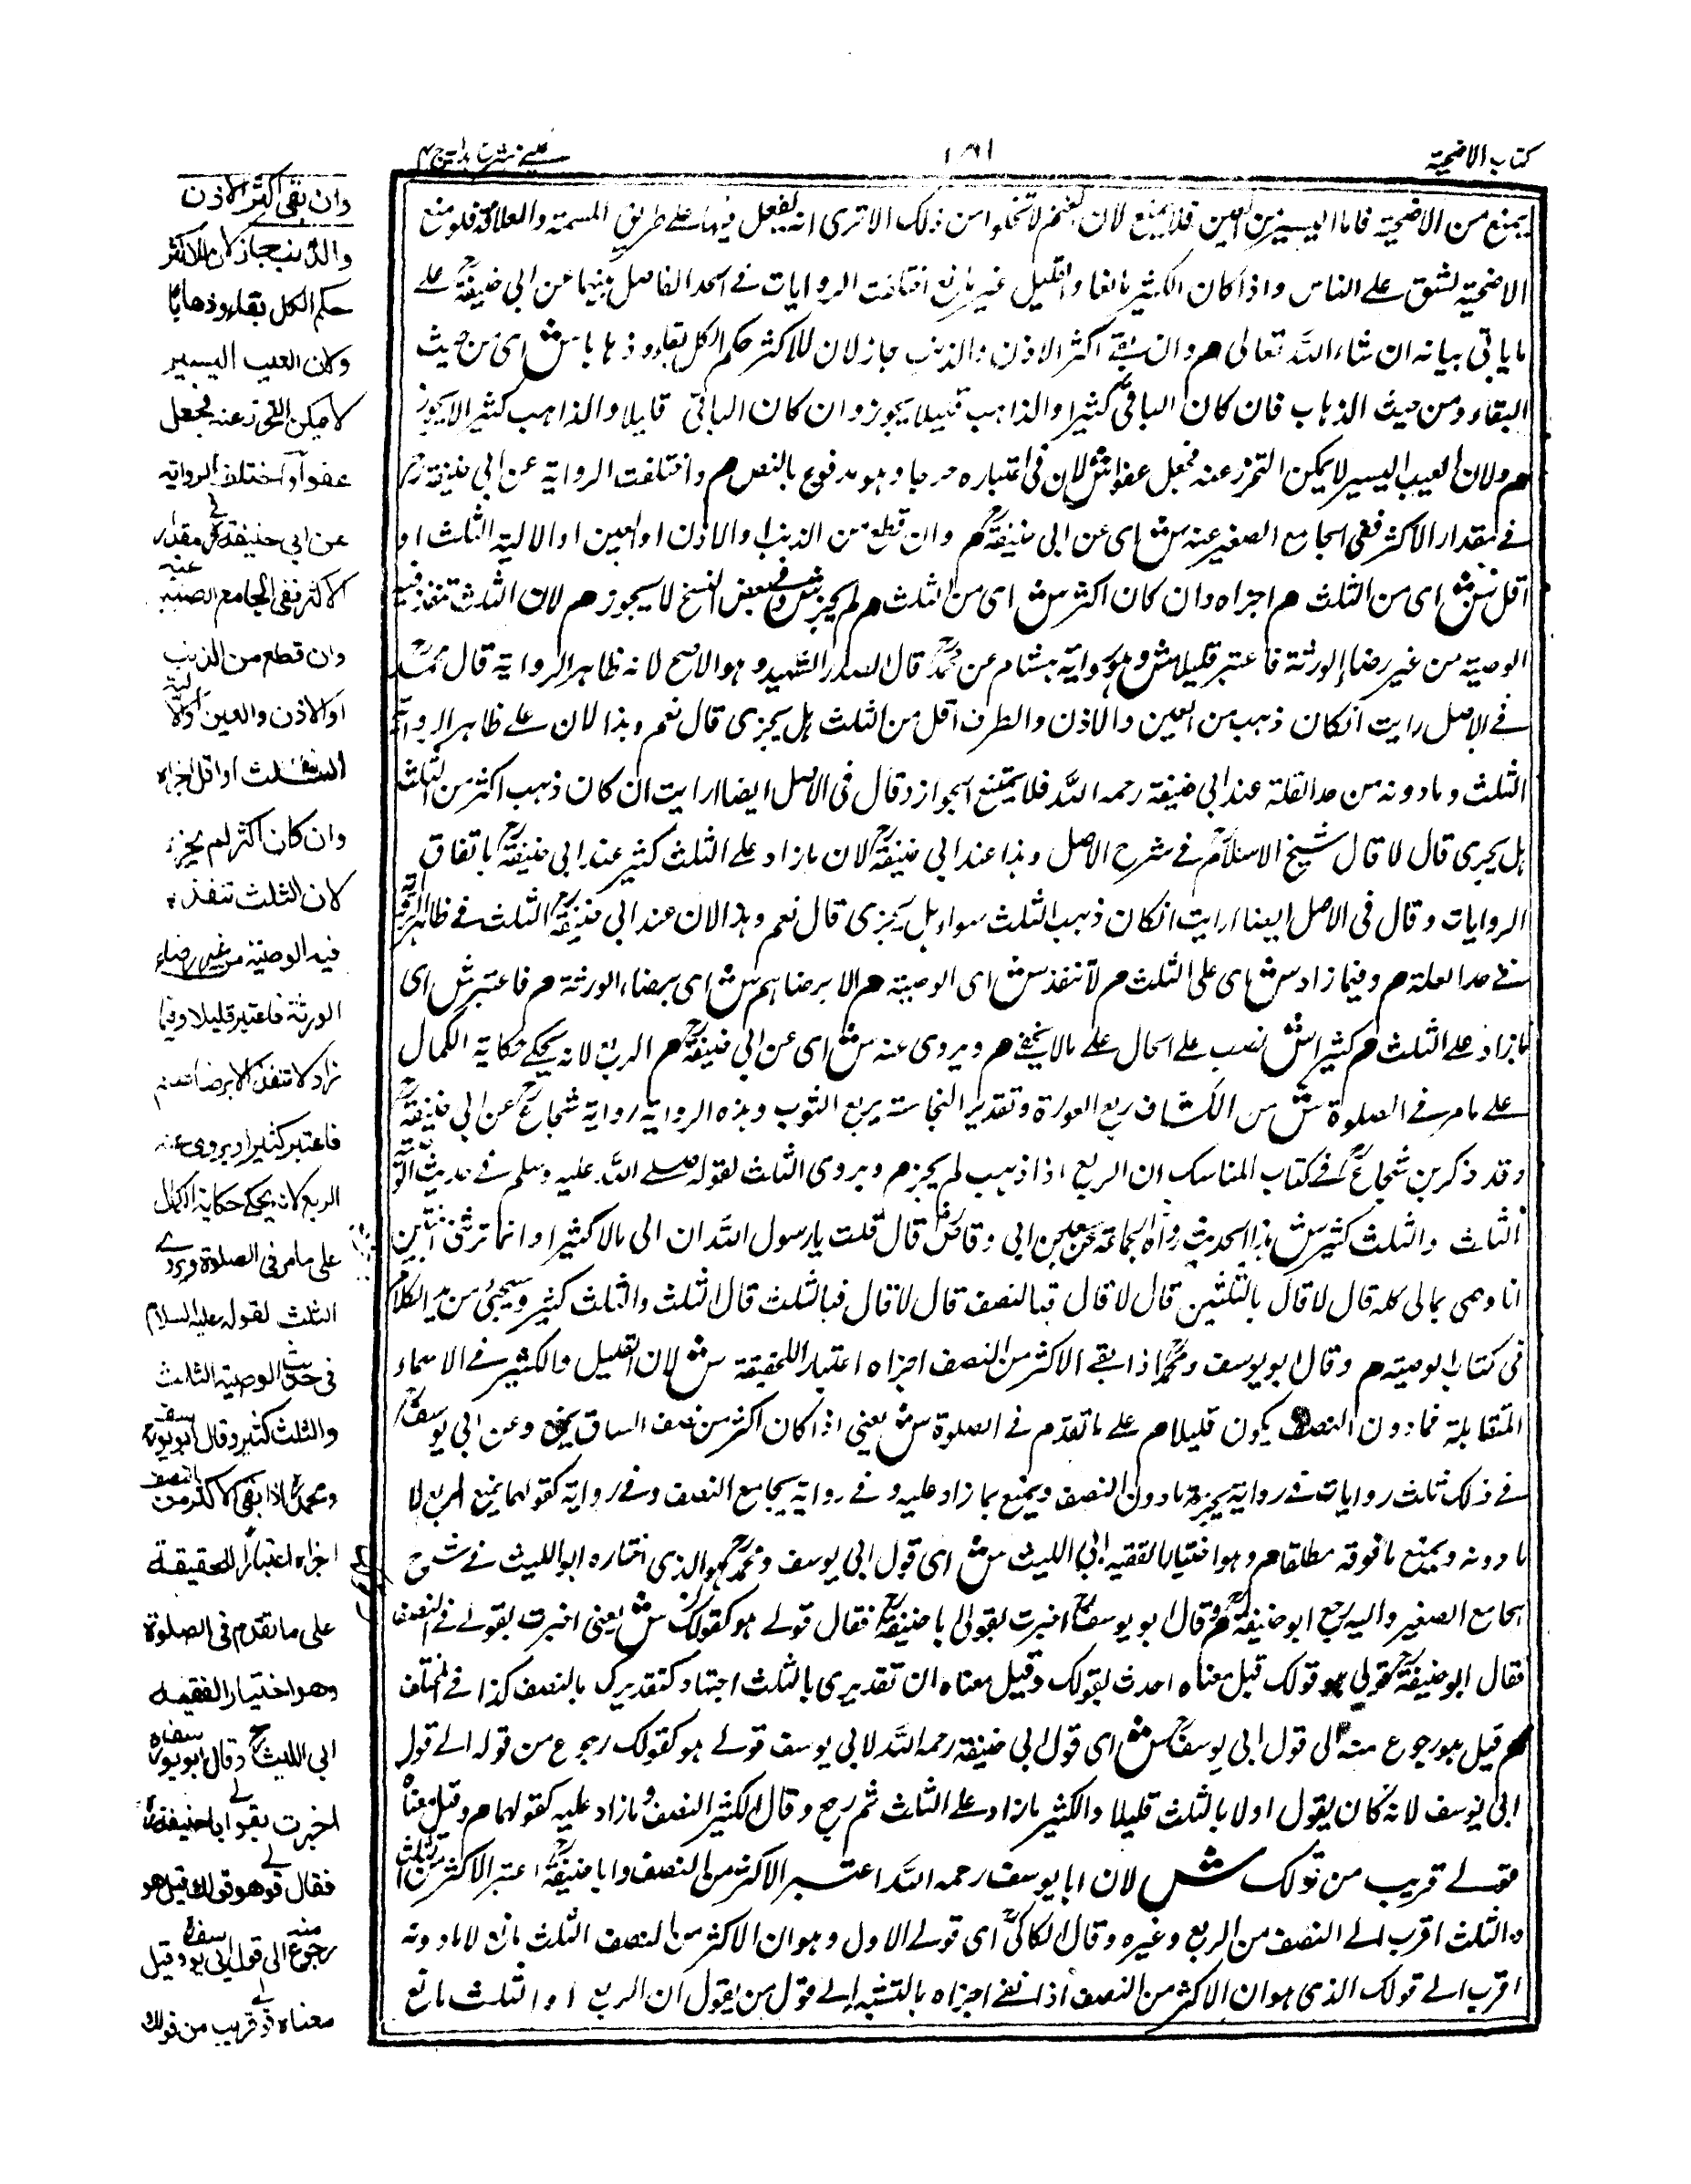 كتاب الاضحية
عينى شرح هداية ج ٤
يمنع من الاضحية فاما اليسير من العين فلا يمنع لان الغنم لا تخلوا من ذلك الا ترى انه يفعل فيها على طريق السمة والعلامة فلو منع
الاضحية لشق على الناس واذا كان الكثير مانعا والقليل غير مانع اختلفت الروايات فى الحد الفاصل بينهما عن ابى حنيفة على
ما ياتى بيانه ان شاء الله تعالى م وان بقى اكثر الاذن والذنب جاز لان للاكثر حكم الكل بقاء وذهابا ش اى من حيث
البقاء ومن حيث الذهاب فان كان الباقى كثيرا والذاهب قليلا يجوز وان كان الباقى قليلا والذاهب كثيرا لا يجوز
م ولان العيب اليسير لا يمكن التحرز عنه فجعل عفوا ش لان فى اعتباره حرجا وهو مدفوع بالنص م واختلفت الرواية عن ابى حنيفة رح
فى مقدار الاكثر ففى الجامع الصغير عنه ش اى عن ابى حنيفة م وان قطع من الذنب او الاذن او العين او الالية الثلث او
اقل ش اى من الثلث م اجزاه وان كان اكثر ش اى من الثلث م لم يجز ش وفى بعض النسخ لا يجوز م لان الثلث تنفذ فيه
الوصية من غير رضاء الورثة فاعتبر قليلا ش وهو رواية هشام عن محمد قال الصدر الشهيد وهو الاصح لانه ظاهر الرواية قال محمد
فى الاصل رايت ان كان ذهب من العين والاذن والطرف اقل من الثلث هل يجزى قال نعم وهذا لان على ظاهر الرواية
الثلث وما دونه من حد القلة عند ابى حنيفة رحمه الله فلا يمتنع الجواز وقال فى الاصل ايضا ارايت ان كان ذهب اكثر من الثلث
هل يجزى قال لا قال شيخ الاسلام فى شرح الاصل وهذا عند ابى حنيفة لان ما زاد على الثلث كثير عند ابى حنيفة باتفاق
الروايات وقال فى الاصل ايضا ارايت ان كان ذهب الثلث سواء هل يجزى قال نعم وهذا لان عند ابى حنيفة الثلث فى ظاهر الرواية
فى حد القلة م وفيما زاد ش اى على الثلث م لا تنفذ ش اى الوصية م الا برضاهم ش اى برضاء الورثة م فاعتبر ش اى
ما زاد على الثلث م كثيرا ش نصب على الحال على ما لا يخفى م ويروى عنه ش اى عن ابى حنيفة م الربع لانه يحكى حكاية الكمال
على ما مر فى الصلوة ش من انكشاف ربع العورة وتقدير النجاسة بربع الثوب وهذه الرواية رواية شجاع عن ابى حنيفة
وقد ذكر بن شجاع فى كتاب المناسك ان الربع اذا ذهب لم يجز م ويروى الثلث لقوله صلى الله عليه وسلم فى حديث الوصية
الثلث والثلث كثير ش هذا الحديث رواه الجماعة عن سعد بن ابى وقاص قال قلت يا رسول الله ان لى مالا كثيرا وانما ترثنى ابنتى
افاوصى بمالى كله قال لا قال بالثلثين قال لا قال فبالنصف قال لا قال فبالثلث قال الثلث والثلث كثير وسيجئ مزيد الكلام
فى كتاب الوصية م وقال ابو يوسف ومحمد اذا بقى الاكثر من النصف اجزاه اعتبارا للحقيقة ش لان القليل والكثير فى الاسماء
المتقابلة فما دون النصف يكون قليلا م على ما تقدم فى الصلوة ش يعنى اذا كان اكثر من نصف الساق يمنع وعن ابى يوسف
فى ذلك ثلث روايات فى رواية يجزيه ما دون النصف ويمنع بما زاد عليه وفى رواية يجامع النصف وفى رواية كقولهما يمنع الربع لا
ما دونه ويمنع ما فوقه مطلقا م وهو اختيار الفقيه ابى الليث ش اى قول ابى يوسف ومحمد هو الذى اختاره ابو الليث فى شرح
الجامع الصغير واليه رجع ابو حنيفة م وقال ابو يوسف اخبرت بقولى ابا حنيفة فقال قولى هو كقولك ش يعنى اخبرت بقولى فى النصف
فقال ابو حنيفة قولى هو قولك قيل معناه احدث بقولك وقيل معناه ان تقديرى بالثلث اجتهاد كتقديرك بالنصف كذا فى المختلف
م قيل هو رجوع منه الى قول ابى يوسف ش اى قول ابى حنيفة رحمه الله لابى يوسف قولى هو كقولك رجوع من قوله الى قول
ابى يوسف لانه كان يقول اولا بالثلث قليلا والكثير ما زاد على الثلث ثم رجع وقال الكثير النصف وما زاد عليه كقولهما م وقيل معناه
قولى قريب من قولك ش لان ابا يوسف رحمه الله اعتبر الاكثر من النصف وابا حنيفة اعتبر الاكثر من الثلث
والثلث اقرب الى النصف من الربع وغيره وقال الكاكى اى قولى الاول وهو ان الاكثر من النصف الثلث مانع لا ما دونه
اقرب الى قولك الذى هو ان الاكثر من النصف اذا بقى اجزاه بالنسبة الى قول من يقول ان الربع او الثلث مانع
وان بقى اكثر الاذن
والذنب جاز لان للاكثر
حكم الكل بقاء وذهابا
ولان العيب اليسير
لا يمكن التحرز عنه فجعل
عفوا واختلف الرواية
عن ابى حنيفة فى مقدار
الاكثر ففى الجامع الصغير عنه
وان قطع من الذنب
او الاذن والعين او الالية
الثلث او اقل اجزاه
وان كان اكثر لم يجز
لان الثلث تنفذ
فيه الوصية من غير رضاء
الورثة فاعتبر قليلا وفيما
زاد لا تنفذ الا برضاهم
فاعتبر كثيرا ويروى عنه
الربع لانه يحكى حكاية الكمال
على ما مر فى الصلاة ويروى
الثلث لقوله عليه السلام
فى حديث الوصية الثلث
والثلث كثير وقال ابو يوسف
ومحمد اذا بقى الاكثر من النصف
اجزاه اعتبارا للحقيقة
على ما تقدم فى الصلوة
وهو اختيار الفقيه
ابى الليث وقال ابو يوسف
اخبرت بقولى ابا حنيفة
فقال قولى هو قولك قيل هو
رجوع منه الى قول ابى يوسف وقيل
معناه قولى قريب من قولك